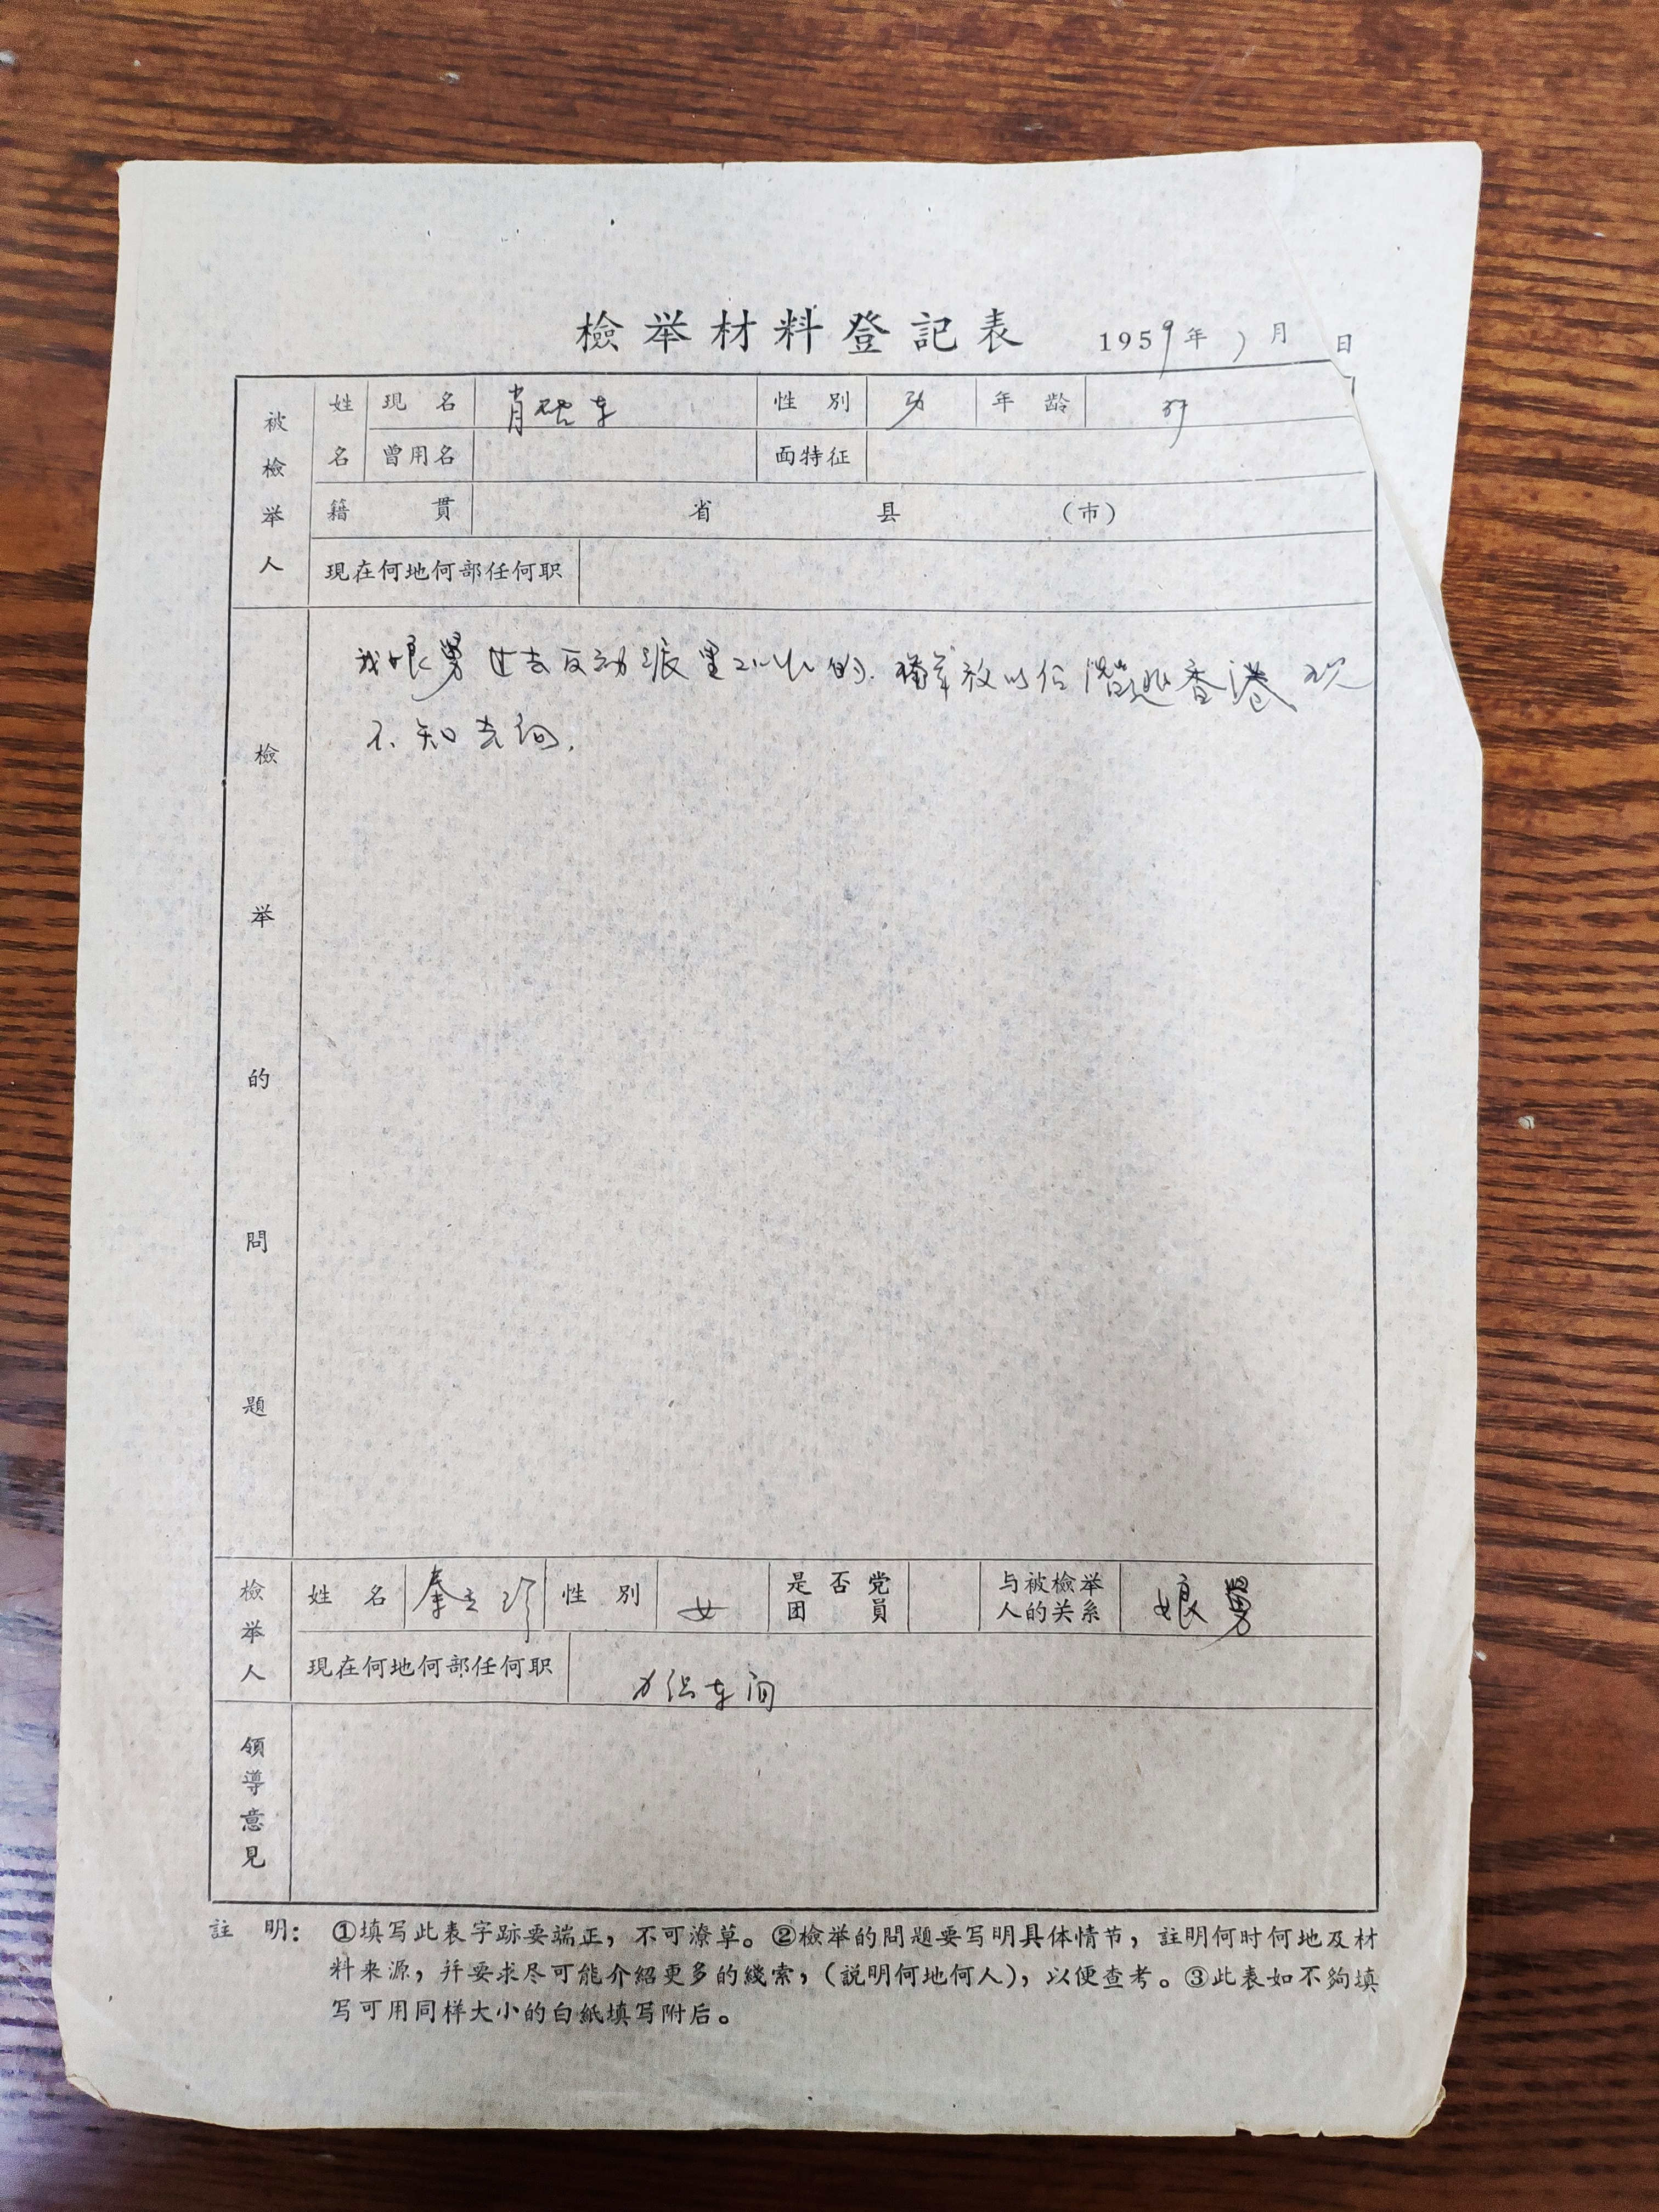 檢举材料登記表 1959年 月 日
被檢举人
姓名 現名 肖 性別 年齡
曾用名 面特征
籍貫 省 县 (市)
現在何地何部任何职
檢举的問題
我娘舅过去反动派里工作的.解放以后潜逃香港 现
不知去向.
檢举人
姓名 秦 性別 女 是否党团員 与被檢举人的关系 娘舅
現在何地何部任何职 力织车间
領導意見
註 明: ①填写此表字跡要端正,不可潦草。②檢举的問題要写明具体情节,註明何时何地及材
料来源,幷要求尽可能介紹更多的綫索,(説明何地何人),以便查考。③此表如不夠填
写可用同样大小的白紙填写附后。